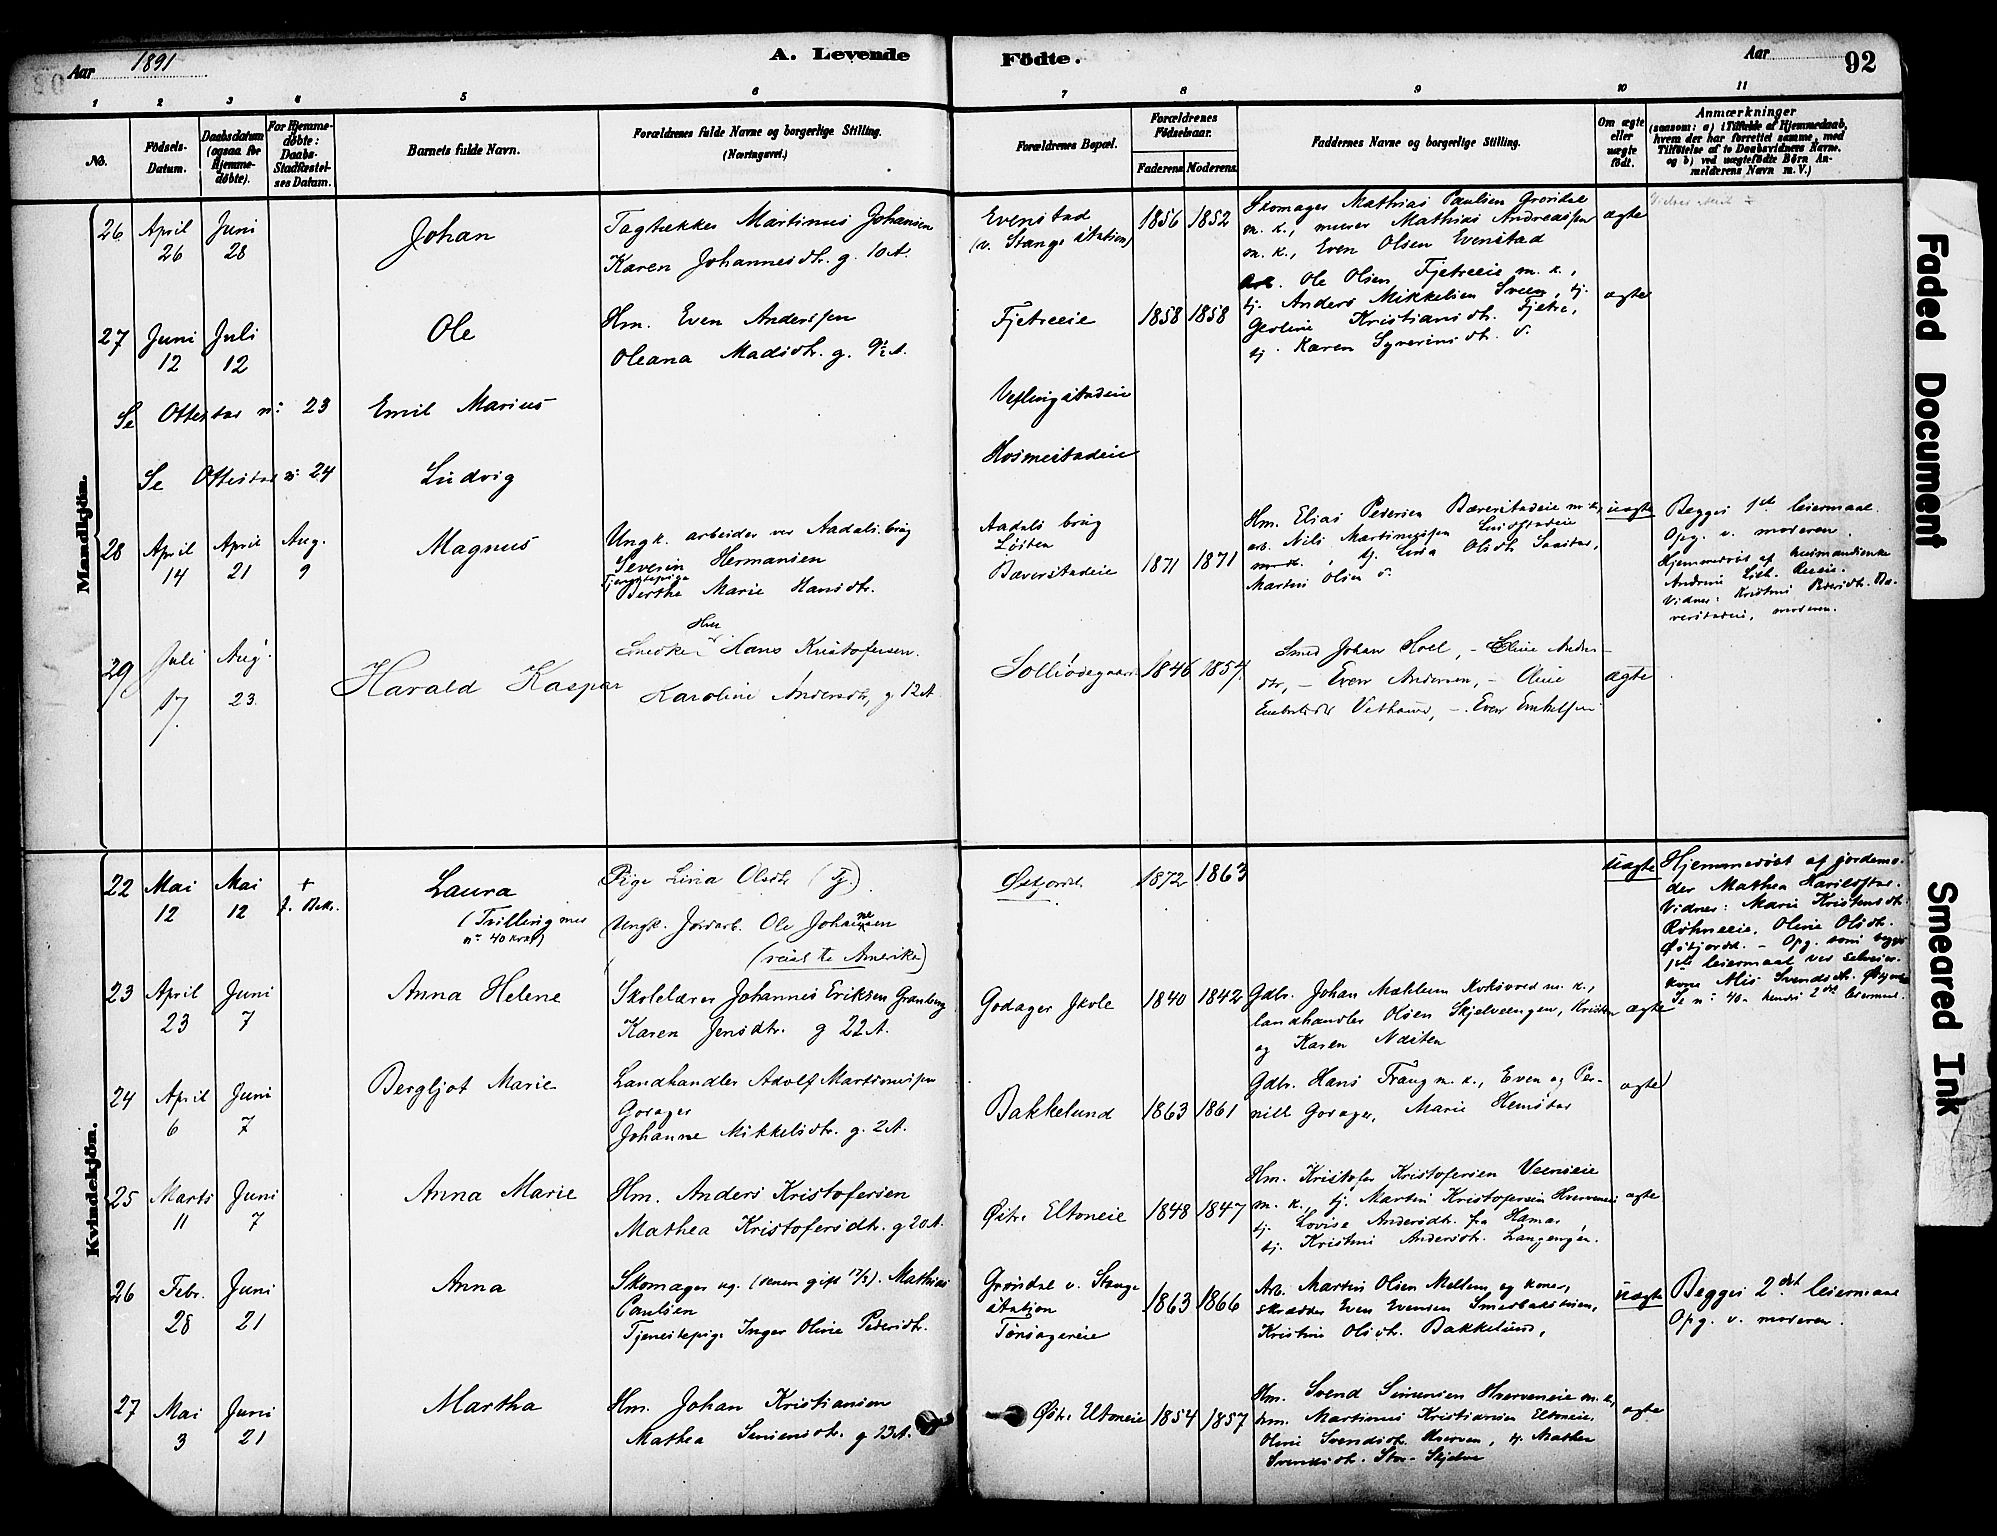 Aar 1891
A. Levende
Födte.
Aar
92
1 2 3 4 5 6 7 8 9 10 11
No.
Födsels-Datum.
Daabsdatum (ogsaa for Hjemme-döbte).
For Hjemme-döbte: Daabs-Stadfæstel-ses Datum.
Barnets fulde Navn.
Forældrenes fulde Navne og borgerlige Stilling. (Næringsvei.)
Forældrenes Bopæl.
Forældrenes Födselsaar.
Faderens Moderens
Faddernes Navne og borgerlige Stilling.
Om ægte eller uægte födt.
Anmærkninger
(saasom: a) i Tilfælde af Hjemmedaab,
hvem der har forrettet samme, med
Tilföielse af to Daabsvidners Navne,
og b) ved uægtefödte Börn An-
melderens Navn m. V.)
Mandkjön.
26 April 26 Juni 28
Johan
Tagtækker Martinus Johansen
Karen Johannesdtr. g. 10 A.
Evenstad
(v. Stange Station)
1856 1852
Skomager Mathias Paulsen Grøndal
m. k., murer Mathias Andreassen
m. k., Even Olsen Evenstad
ægte
27 Juni 12 Juli 12
Ole
Hm. Even Anderssen
Oleana Madsdtr. g. 9½ A.
Fjetreeie
1858 1858
Arb. Ole Olsen Fjetreeie m. k.,
tj. Anders Mikkelsen Sveen, tj.
Goline Kristiansdtr. Fjetre,
tj. Karen Syverinsdtr. v.
ægte
Se Ottestad n: 23
Emil Marius
Veflingstadeie
Se Ottestad n: 24
Ludvig
Hosmestadeie
28 April 14 April 21 Aug. 9
Magnus
Ungk. arbeider ved Aadals brug
Severin Hermansen
Tjenestepige
Berthe Marie Hansdtr.
Aadals brug
Løiten
Bæverstadeie
1871 1871
Hm. Elias Pedersen Bæverstadeie m. k.,
arb. Nils Martinussen
m. k., tj. Lina Olsdtr.
Martin Olsen v.
uægte
Begges 1ste leiermaal.
Opg. v. moderen.
Hjemmedøbt af husmandsenke
Vidner: Kristine Pedersdtr. Bæ-
verstadeie, moderen.
29 Juli 17. Aug. 23.
Harald Kaspar
Snedker Hans Kristofersen.
Karoline Andersdtr, g 12 A.
Solliødegaard
1846 1854.
Smed Johan Hoel, - Eline Anders-
dtr, - Even Andersen, - Oline
Embretsdtr - Even Emhelsen
ægte
Kvindekjön.
22 Mai 12 Mai 12
+ f. Bekr.
Laura
(Tvilling med
n: 40 kvk)
Pige Lina Olsdtr (Tj.).
Ungk. Jordarb. Ole Johannesen
(reist til Amerika)
Østjordet.
1872 1863
uægte
Hjemmedøbt af jordemo-
der Mathea Harildstad.
Vidner: Marie Kristensdtr.
Røhneeie, Oline Olsdtr.
Østjordet. - Opg. som begges
1ste leiermaal ved selveier-
kone Mis Svendsdtr. Østjordet
Se n: 40 - hendes 2det leiermaal.
23 April 23 Juni 7
Anna Helene
Skolelærer Johannes Eriksen Granberg
Karen Jensdtr. g 22 A.
Godager Skole
1840 1842
Gdbr. Johan Mæhlum Korsvold m. k.,
landhandler Olsen Skjelveengen, Kristian
og Karen Næsten
ægte
24 April 6 Juni 7
Bergljot Marie
Landhandler Adolf Martinussen
Godager
Johanne Mikkelsdtr. g. 2 A.
Bakkelund
1863 1861
Gdbr. Hans Frang m. k., Even og Per-
nille Godager, Marie Hemstad
ægte
25 Marts 11 Juni 7
Anna Marie
Hm. Anders Kristofersen
Mathea Kristofersdtr. g 20 A.
Østr. Eltoneie
1848 1847
Hm. Kristofer Kristofersen Veeneeie
m. k., tj. Martin Kristofersen Hverveneie
tj. Lovise Andersdtr. fra Hamar,
tj. Kristine Andersdtr. Langengen.
ægte
26 Febr. 28 Juni 21
Anna
Skomager ug. (senere gift 17/5). Mathias
Paulsen
Tjenestepige Inger Oline Pedersdtr.
Grøndal v. Stange
station
Tønsagereie
1863 1866
Arb. Martin Olsen Mellem og kone,
skrædder Even Evensen Smedstadstuen,
Kristine Olsdtr. Bakkelund,
uægte
Begges 2det leiermaal
Opg. v. moderen.
27 Mai 3 Juni 21
Martha
Hm. Johan Kristiansen
Mathea Simensdtr. g 13 A.
Østr. Utoneie
1854 1857
Hm. Svend Simensen Hverveneie m. k.,
hm. Martinus Kristiansen Eltoneie,
Oline Svendsdtr. Hverven, tj. Mathea
Svendsdtr. Stor-Skjelve
ægte
Faded Document
Smeared Ink